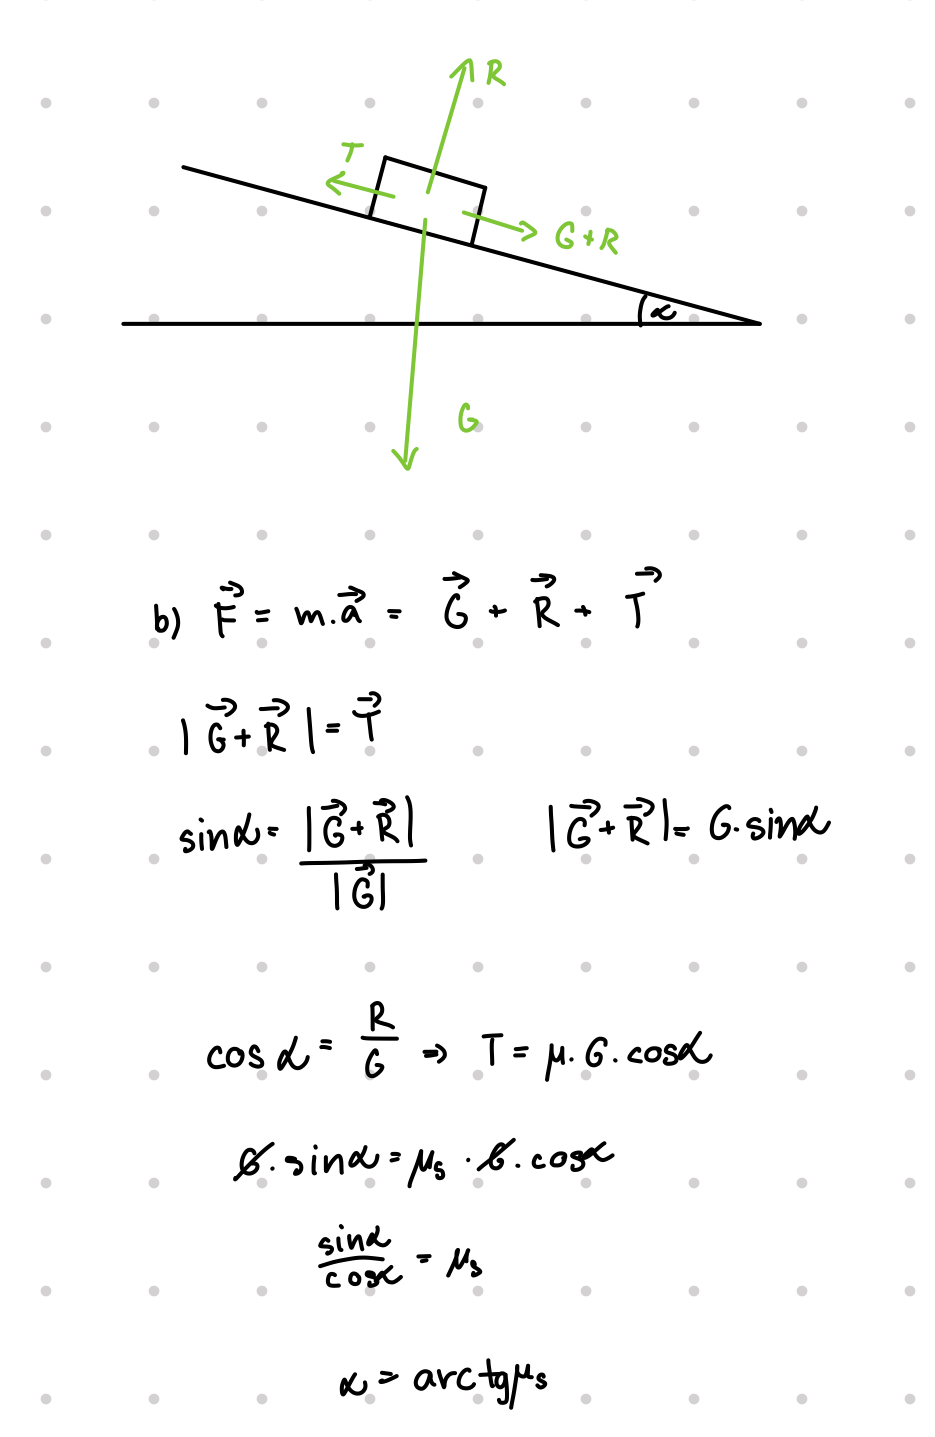 R
T
G+R
α
G
b) F⃗ = m.a⃗ = G⃗ + R⃗ + T⃗
|G⃗+R⃗| = T⃗
sinα = |G⃗+R⃗| / |G⃗|    |G⃗+R⃗| = G·sinα
cosα = R/G ⇒ T = μ.G.cosα
G.sinα = μs·G.cosα
sinα/cosα = μs
α = arctgμs